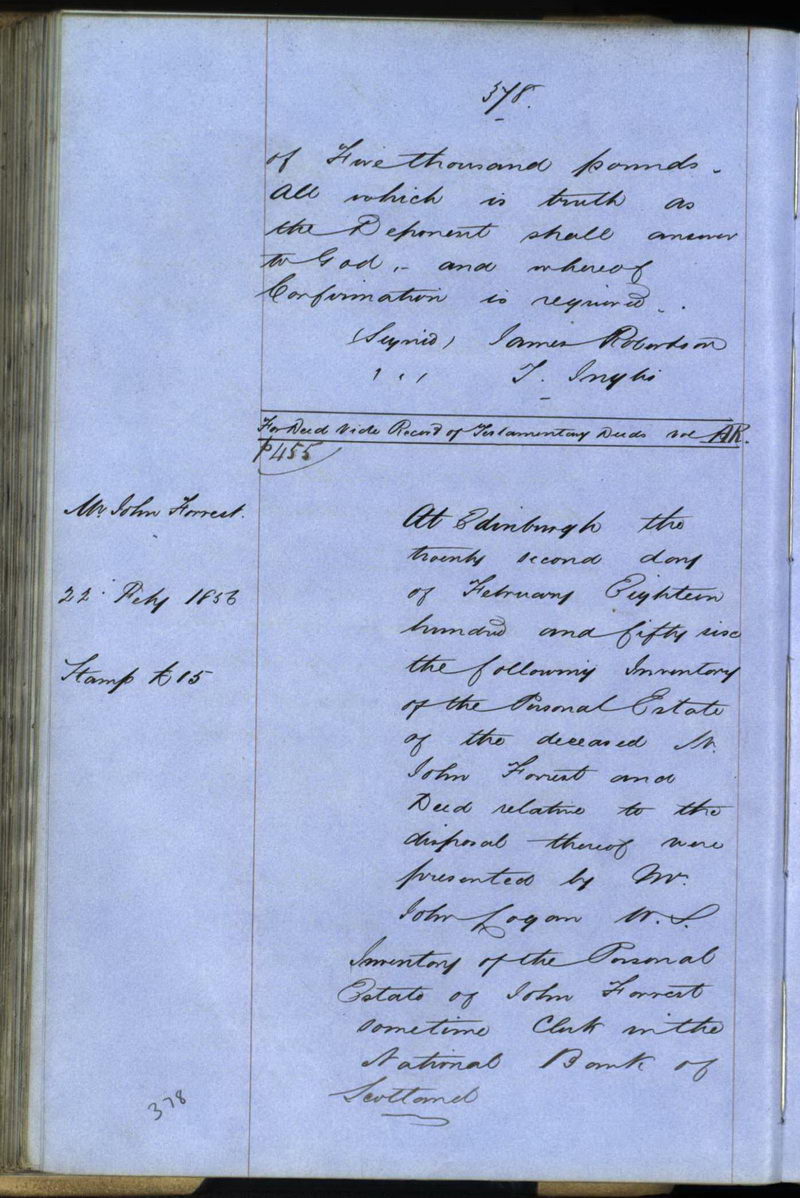 378.
of Five thousand pounds.
All which is truth as
the Deponent shall answer
to God, - and whereof
Confirmation is required.
(Signed) James Robertson
" " T. Inglis
For Deed vide Record of Testamentary Deeds vol AR.
P 455
Mr. John Forrest.
22 Feby 1856
Stamp £15
At Edinburgh the
twenty second day
of February Eighteen
hundred and fifty six
the following Inventory
of the Personal Estate
of the deceased Mr.
John Forrest and
Deed relative to the
disposal thereof were
presented by Mr.
John Logan W.S.
Inventory of the Personal
Estate of John Forrest
sometime Clerk in the
National Bank of
Scotland
378